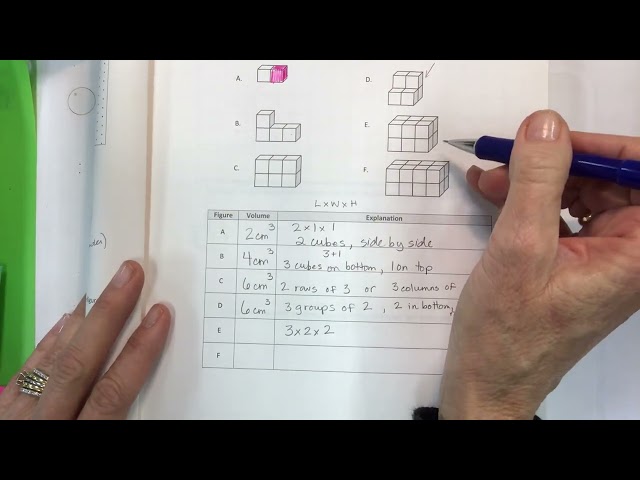 A.
D.
B.
E.
C.
F.
L×W×H
Figure Volume Explanation
A 2cm³ 2×1×1
2 cubes, side by side
B 4cm³ 3+1
3 cubes on bottom, 1 on top
C 6cm³ 2 rows of 3 or 3 columns of
D 6cm³ 3 groups of 2, 2 in bottom,
E 3×2×2
F